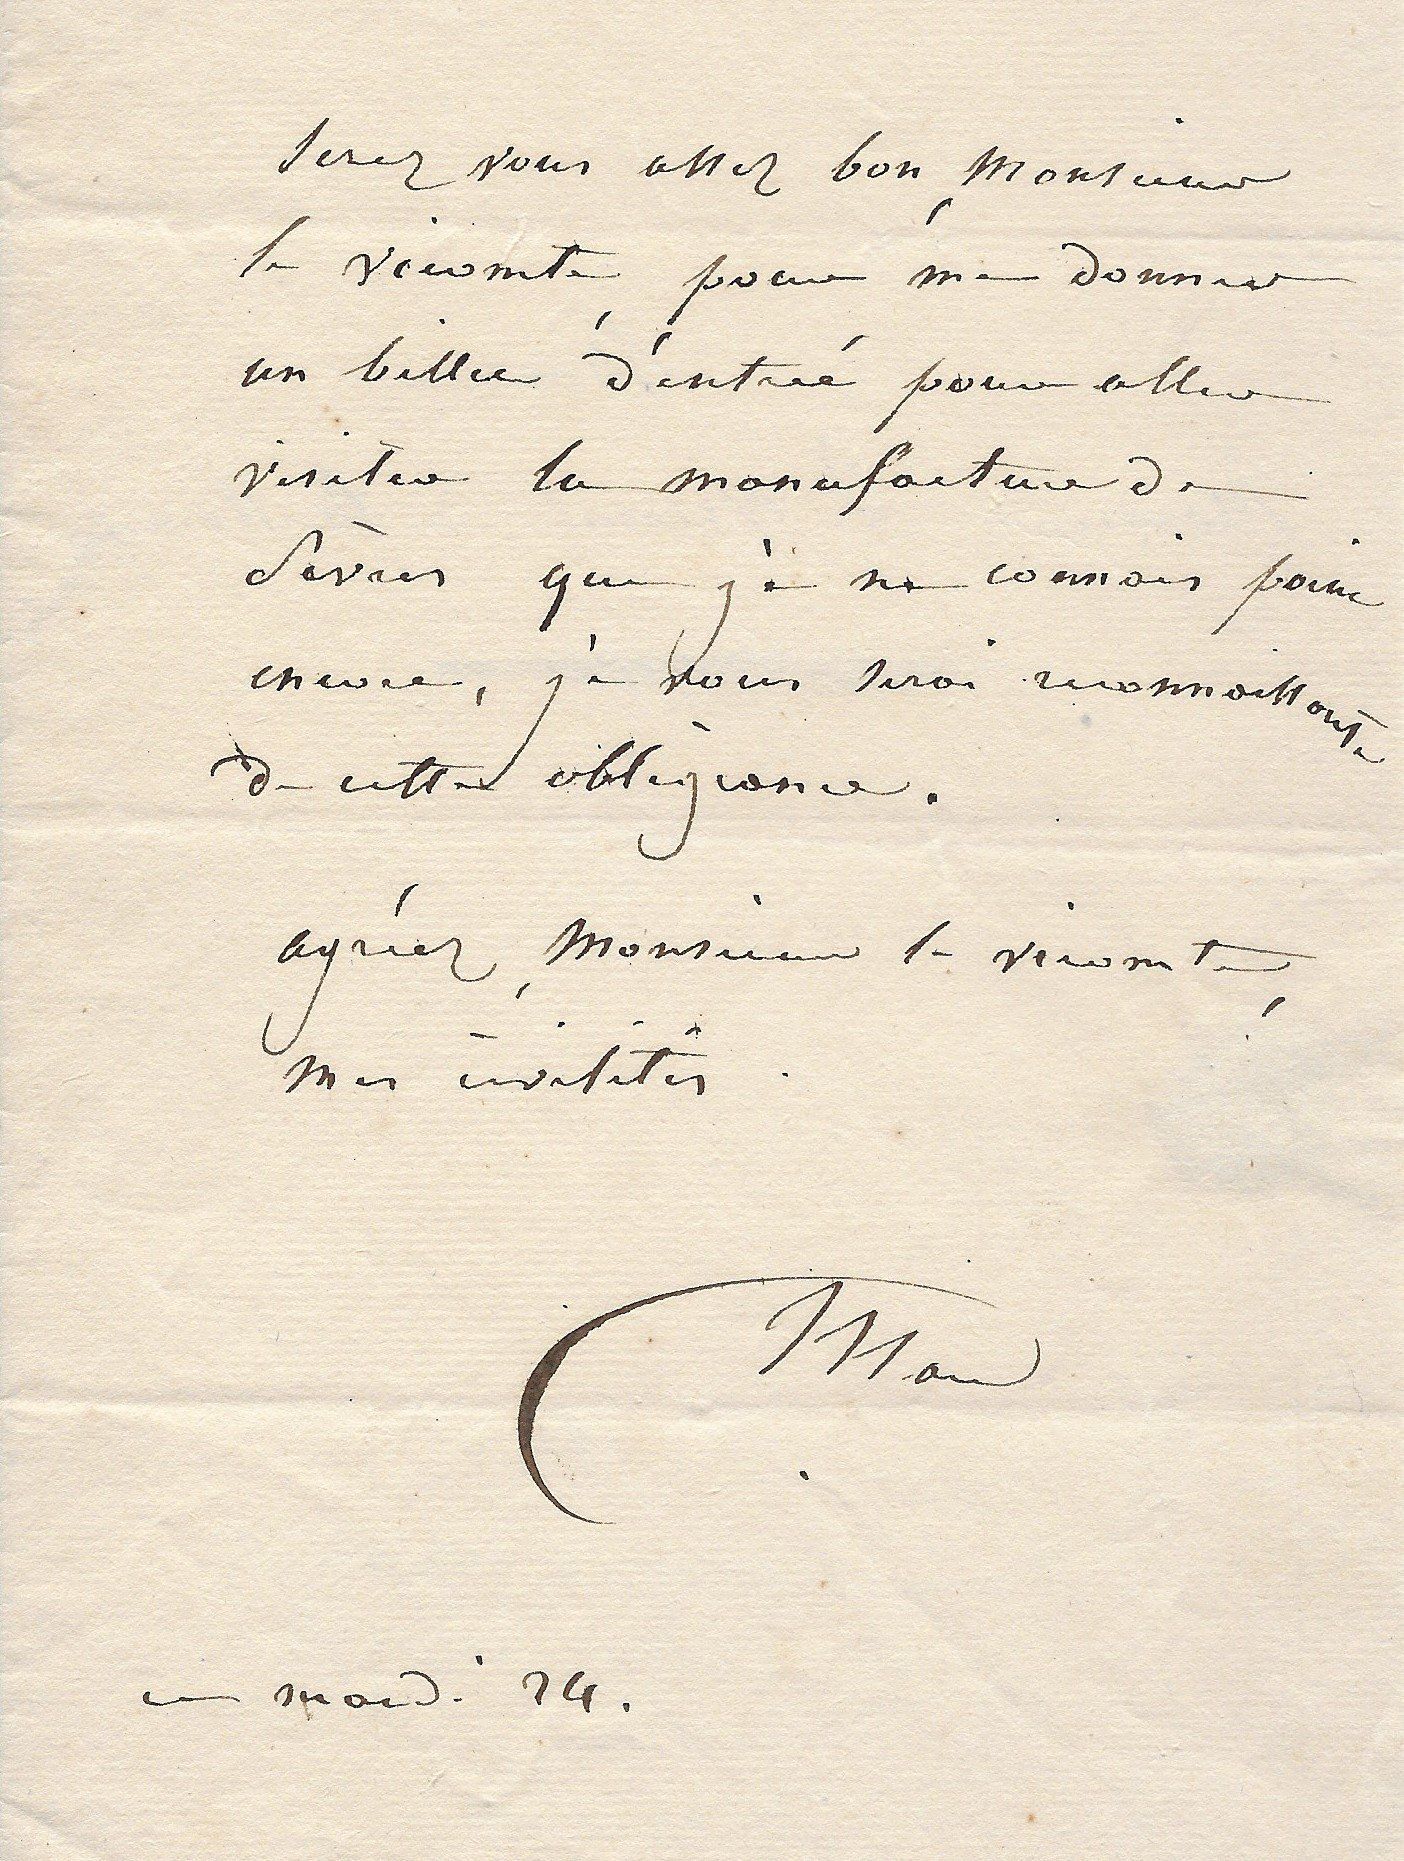 serez vous assez bon, Monsieur
le vicomte, pour me donner
un billet d'entrée pour aller
visiter la manufacture de
Sèvres que je ne connois point
encore, je vous serai reconnoissante
de cette obligeance.
agréez, Monsieur le vicomte,
mes civilités.
Mars
ce mardi 24.